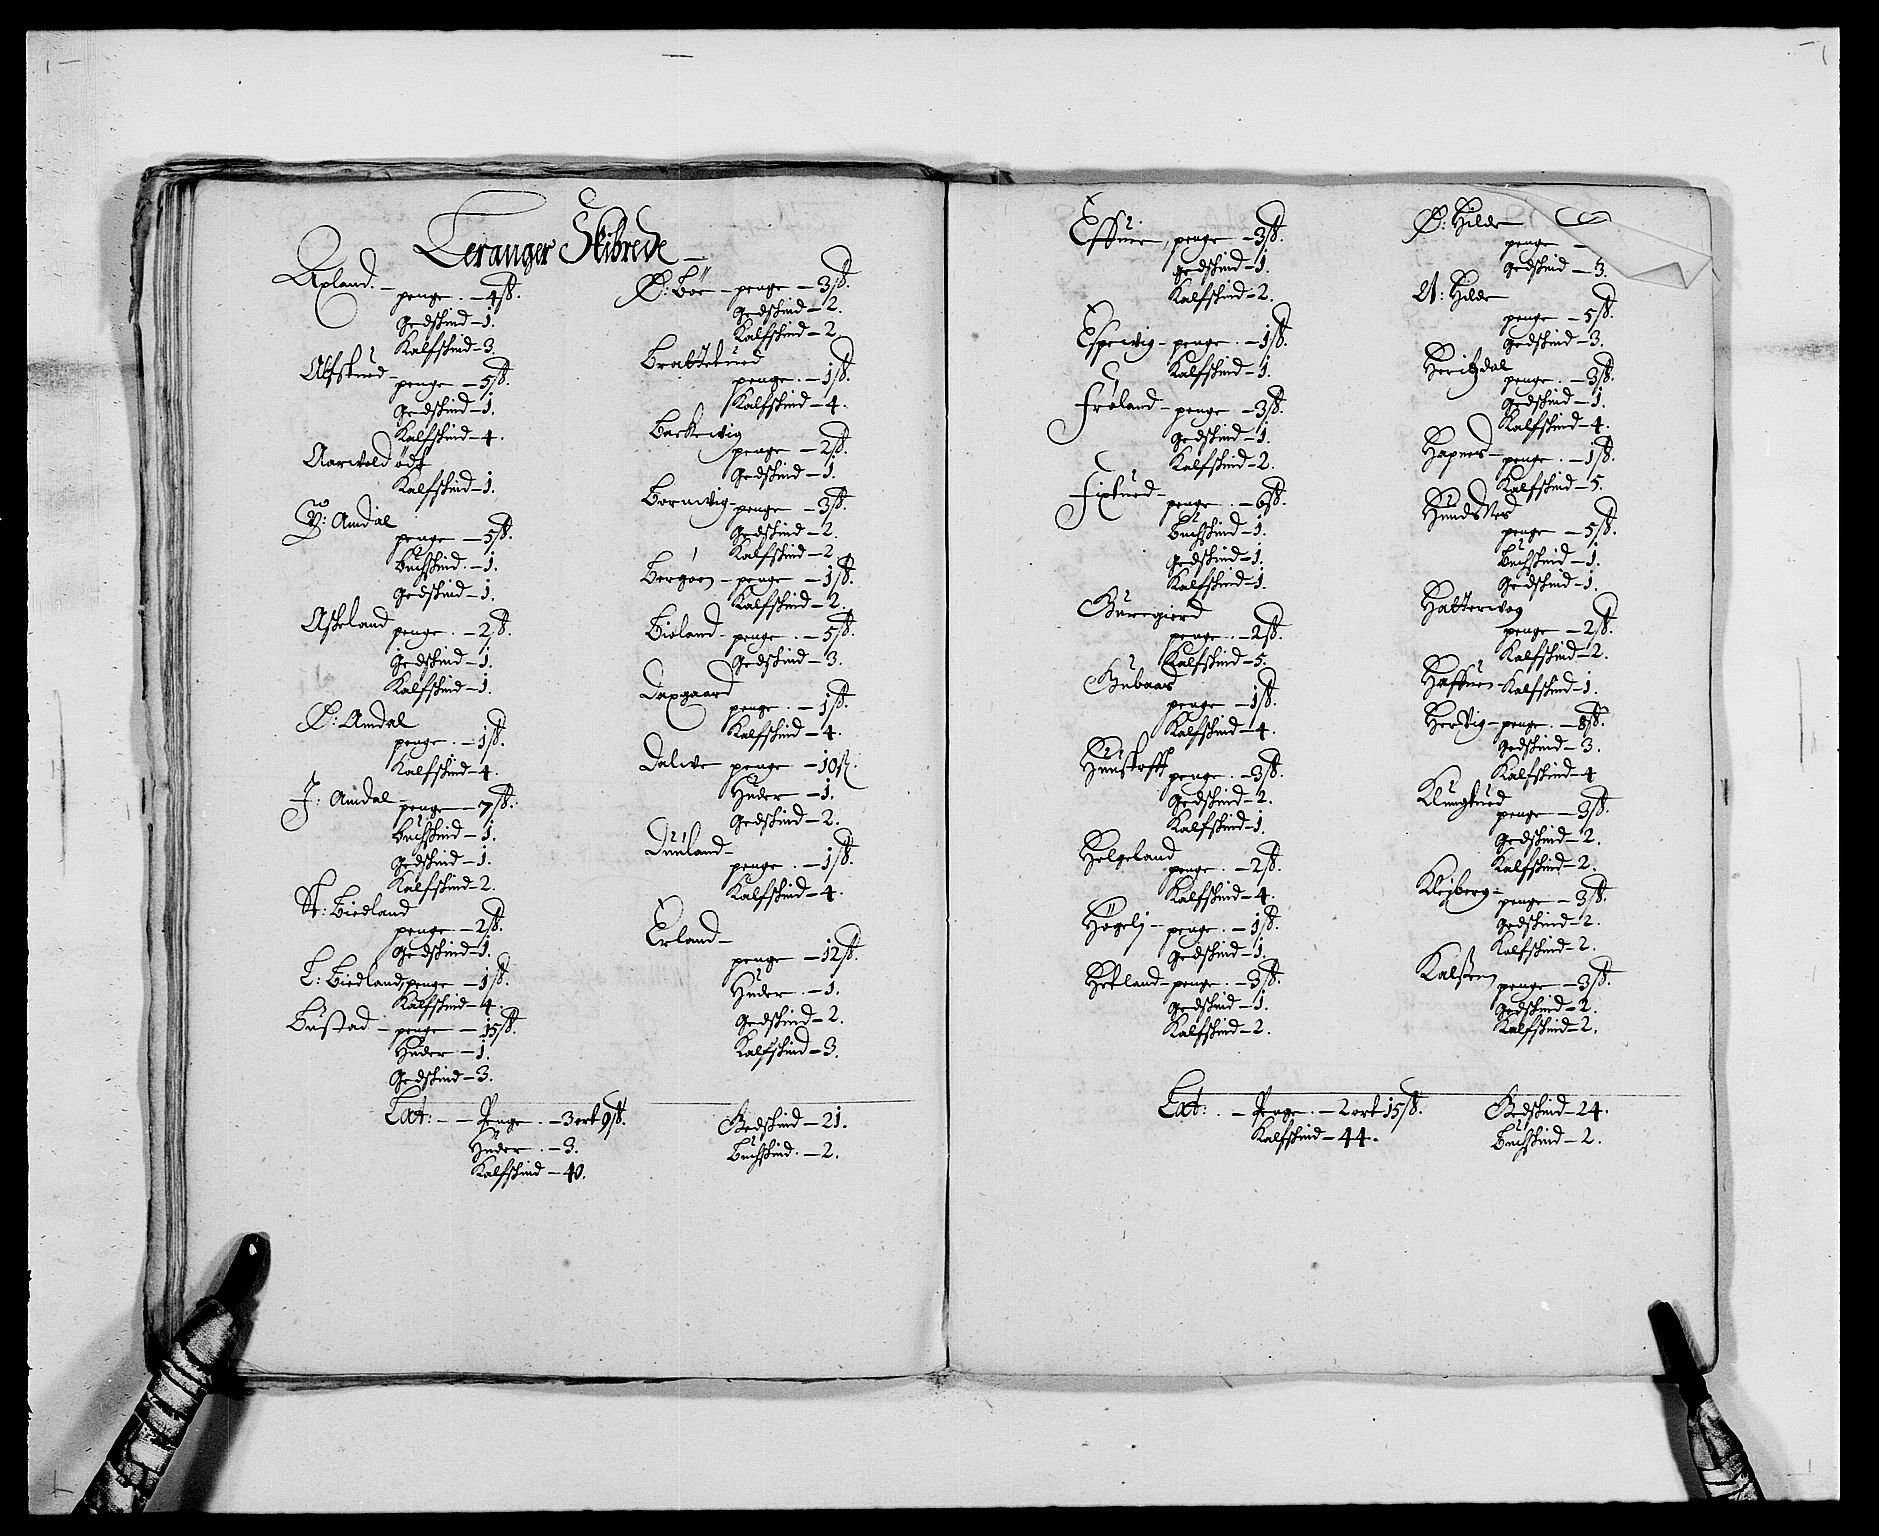 Leranger Skibrede
Axland. - penge. - 4 ß.
Gedskind - 1.
Kalfskind - 3.
Alfskued - penge - 5 ß.
Gedskind - 1.
Kalfskind - 4.
Aarvold ødt
Kalfskind - 1.
Y: Amdal
penge - 5 ß.
Buchskind. - 1.
Gedskind - 1.
Askeland penge. - 2 ß.
Gedskind - 1.
Kalfskind - 1.
Ø: Amdal
penge. - 1 ß.
Kalfskind - 4.
J: Amdal - penge - 7 ß.
Buchskind - 1.
Gedskind - 1.
Kalfskind - 2.
St: Biedland
penge - 2 ß.
Gedskind - 1.
L: Biedland, penge - 1 ß.
Kalfskind - 4.
Bustad - penge - 15 ß.
Huder - 1.
Gedskind - 3.
Ø: Bör - penge - 3 ß.
Gedskind - 2.
Kalfskind - 2.
Brattetued
penge. - 1 ß.
Kalfskind - 4.
Barkevig
penge - 2 ß.
Gedskind - 1.
Bornevig - penge - 3 ß.
Gedskind - 2.
Kalfskind - 2.
Bergøen - penge - 1 ß.
Kalfskind - 2.
Bioland - penge. - 5 ß.
Gedskind - 3.
Daxgaard
penge. - 1 ß.
Kalfskind - 4.
Dalwe penge - 10 ß.
Huder - 1.
Gedskind - 2.
Duuland -
penge. - 1 ß.
Kalfskind - 4.
Erland -
penge - 12 ß.
Huder. - 1.
Gedskind - 2.
Kalfskind - 3.
Lat: - - Penge. - 3 ort 9 ß.
Huder. - 3.
Kalfskind - 40.
Gedskind - 21.
Buchskind. - 2.
Effuie, penge - 3 ß.
Gedskind - 1.
Kalfskind - 2.
Espevig - penge. - 1 ß.
Kalfskind - 1.
Frøland - penge - 3 ß.
Gedskind - 1.
Kalfskind - 2.
Fixtued -
penge. - 6 ß.
Buchskind - 1.
Gedskind - 1.
Kalfskind - 1.
Guregierd
penge. - 2 ß.
Kalfskind - 5.
Gubaas
penge - 1 ß.
Kalfskind - 4.
Huustofft penge. - 3 ß.
Gedskind - 2.
Kalfskind - 1.
Helgeland
penge. - 2 ß.
Kalfskind - 4.
Høgelj - penge. - 1 ß.
Gedskind - 1.
Hetland - penge. - 3 ß.
Gedskind - 1.
Kalfskind - 2.
Ø: Hilde
penge -
Gedskind - 3.
N: Hilde
penge - 5 ß.
Gedskind - 3.
Heritzdal
penge. - 3 ß.
Gedskind - 1.
Kalfskind - 4.
Hapnes - penge. - 1 ß.
Kalfskind - 5.
Hundsnes
penge - 5 ß.
Buchskind - 1.
Gedskind - 1.
Hattervog
penge - 2 ß.
Kalfskind - 2.
Haffuen - Kalfskind - 1.
Hervig - penge. - 8 ß.
Gedskind - 3.
Kalfskind - 4
Klungtued
penge - 3 ß.
Gedskind - 2.
Kalfskind - 2.
Klejberg -
penge - 3 ß.
Gedskind - 2.
Kalfskind - 2.
Kalsten
penge - 3 ß.
Gedskind - 2.
Kalfskind - 2.
Lat: . - Penge. - 2 ort 15 ß.
Kalfskind - 44.
Gedskind - 24.
Buchskind - 2.